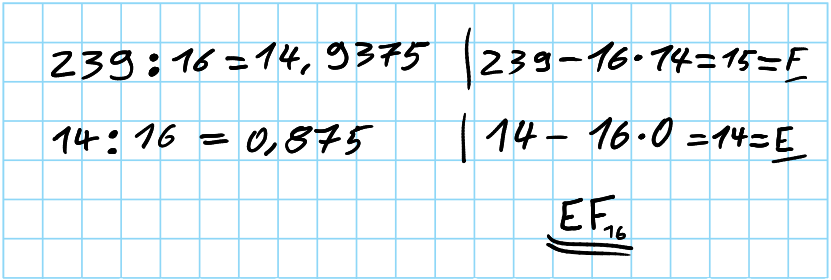 239:16=14,9375 | 239-16·14=15=F
14:16=0,875 | 14-16·0=14=E
EF₁₆